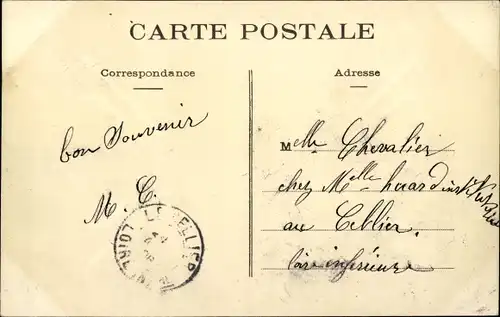 CARTE POSTALE
Correspondance
Adresse
bon Souvenir
M. C.
LE CELLIER
LOIRE
Melle Chevalier
chez Melle huard
au Cellier.
loire inférieure